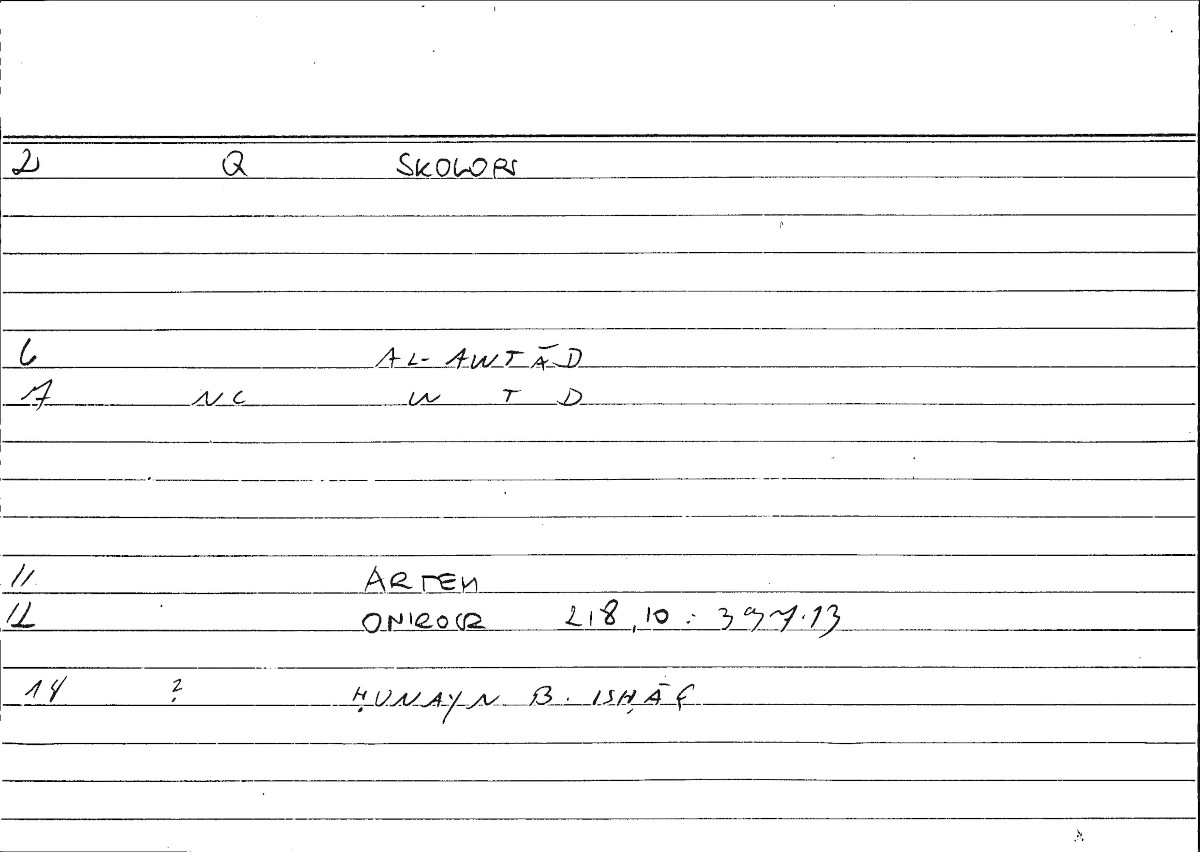 2 Q SKOLOPS
6 AL-AWTĀD
7 NC W T D
11 ARTEM
12 ONIROCR 218,10 : 397.13
14 ? ḤUNAYN B. ISḤĀQ